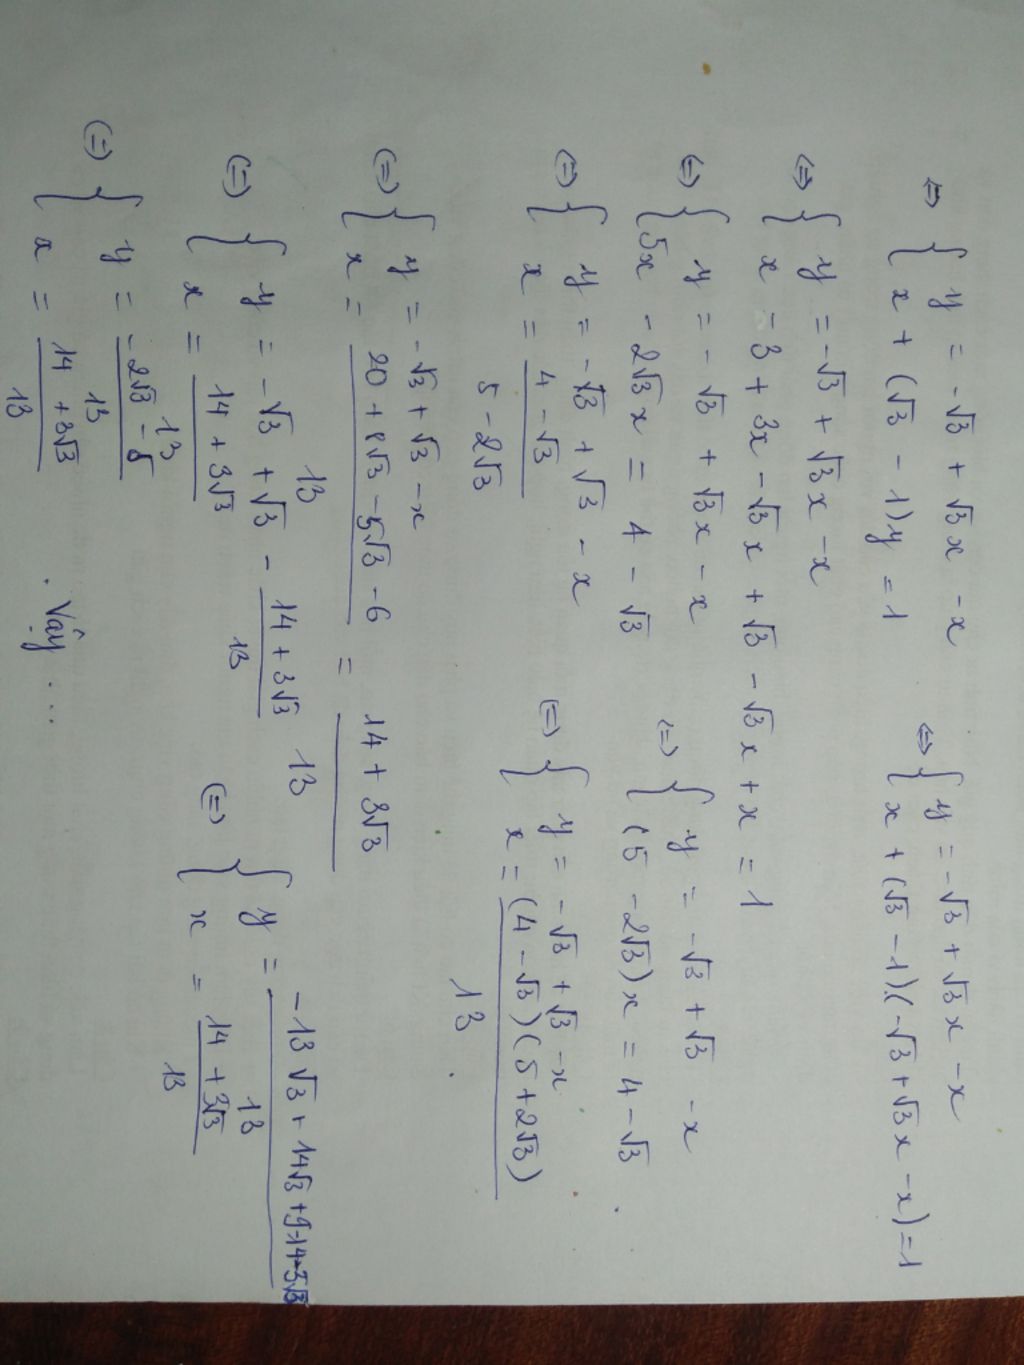 ⇔ { y = -√3 + √3x - x
x + (√3 - 1)y = 1
⇔ { y = -√3 + √3x - x
x + (√3 - 1).(-√3 + √3x - x) = 1
⇔ { y = -√3 + √3x - x
x = 3 + 3x - √3x + √3 - √3x + x = 1
⇔ { y = -√3 + √3x - x
5x - 2√3x = 4 - √3
(=) { y = -√3 + √3 - x
(5 - 2√3)x = 4 - √3
(=) { y = -√3 + √3 - x
x = 4 - √3
5 - 2√3
(=) { y = -√3 + √3 - x
x = (4 - √3)(5 + 2√3)
13
(=) { y = -√3 + √3 - x
x = 20 + 8√3 - 5√3 - 6 = 14 + 3√3
13 13
(=) { y = -√3 + √3 - 14 + 3√3
13
x = 14 + 3√3
13
(=) { y = -13√3 + 14√3 + 9 - 14 - 3√3
13
x = 14 + 3√3
13
(=) { y = -2√3 - 5
13
x = 14 + 3√3
13
. Vậy ...